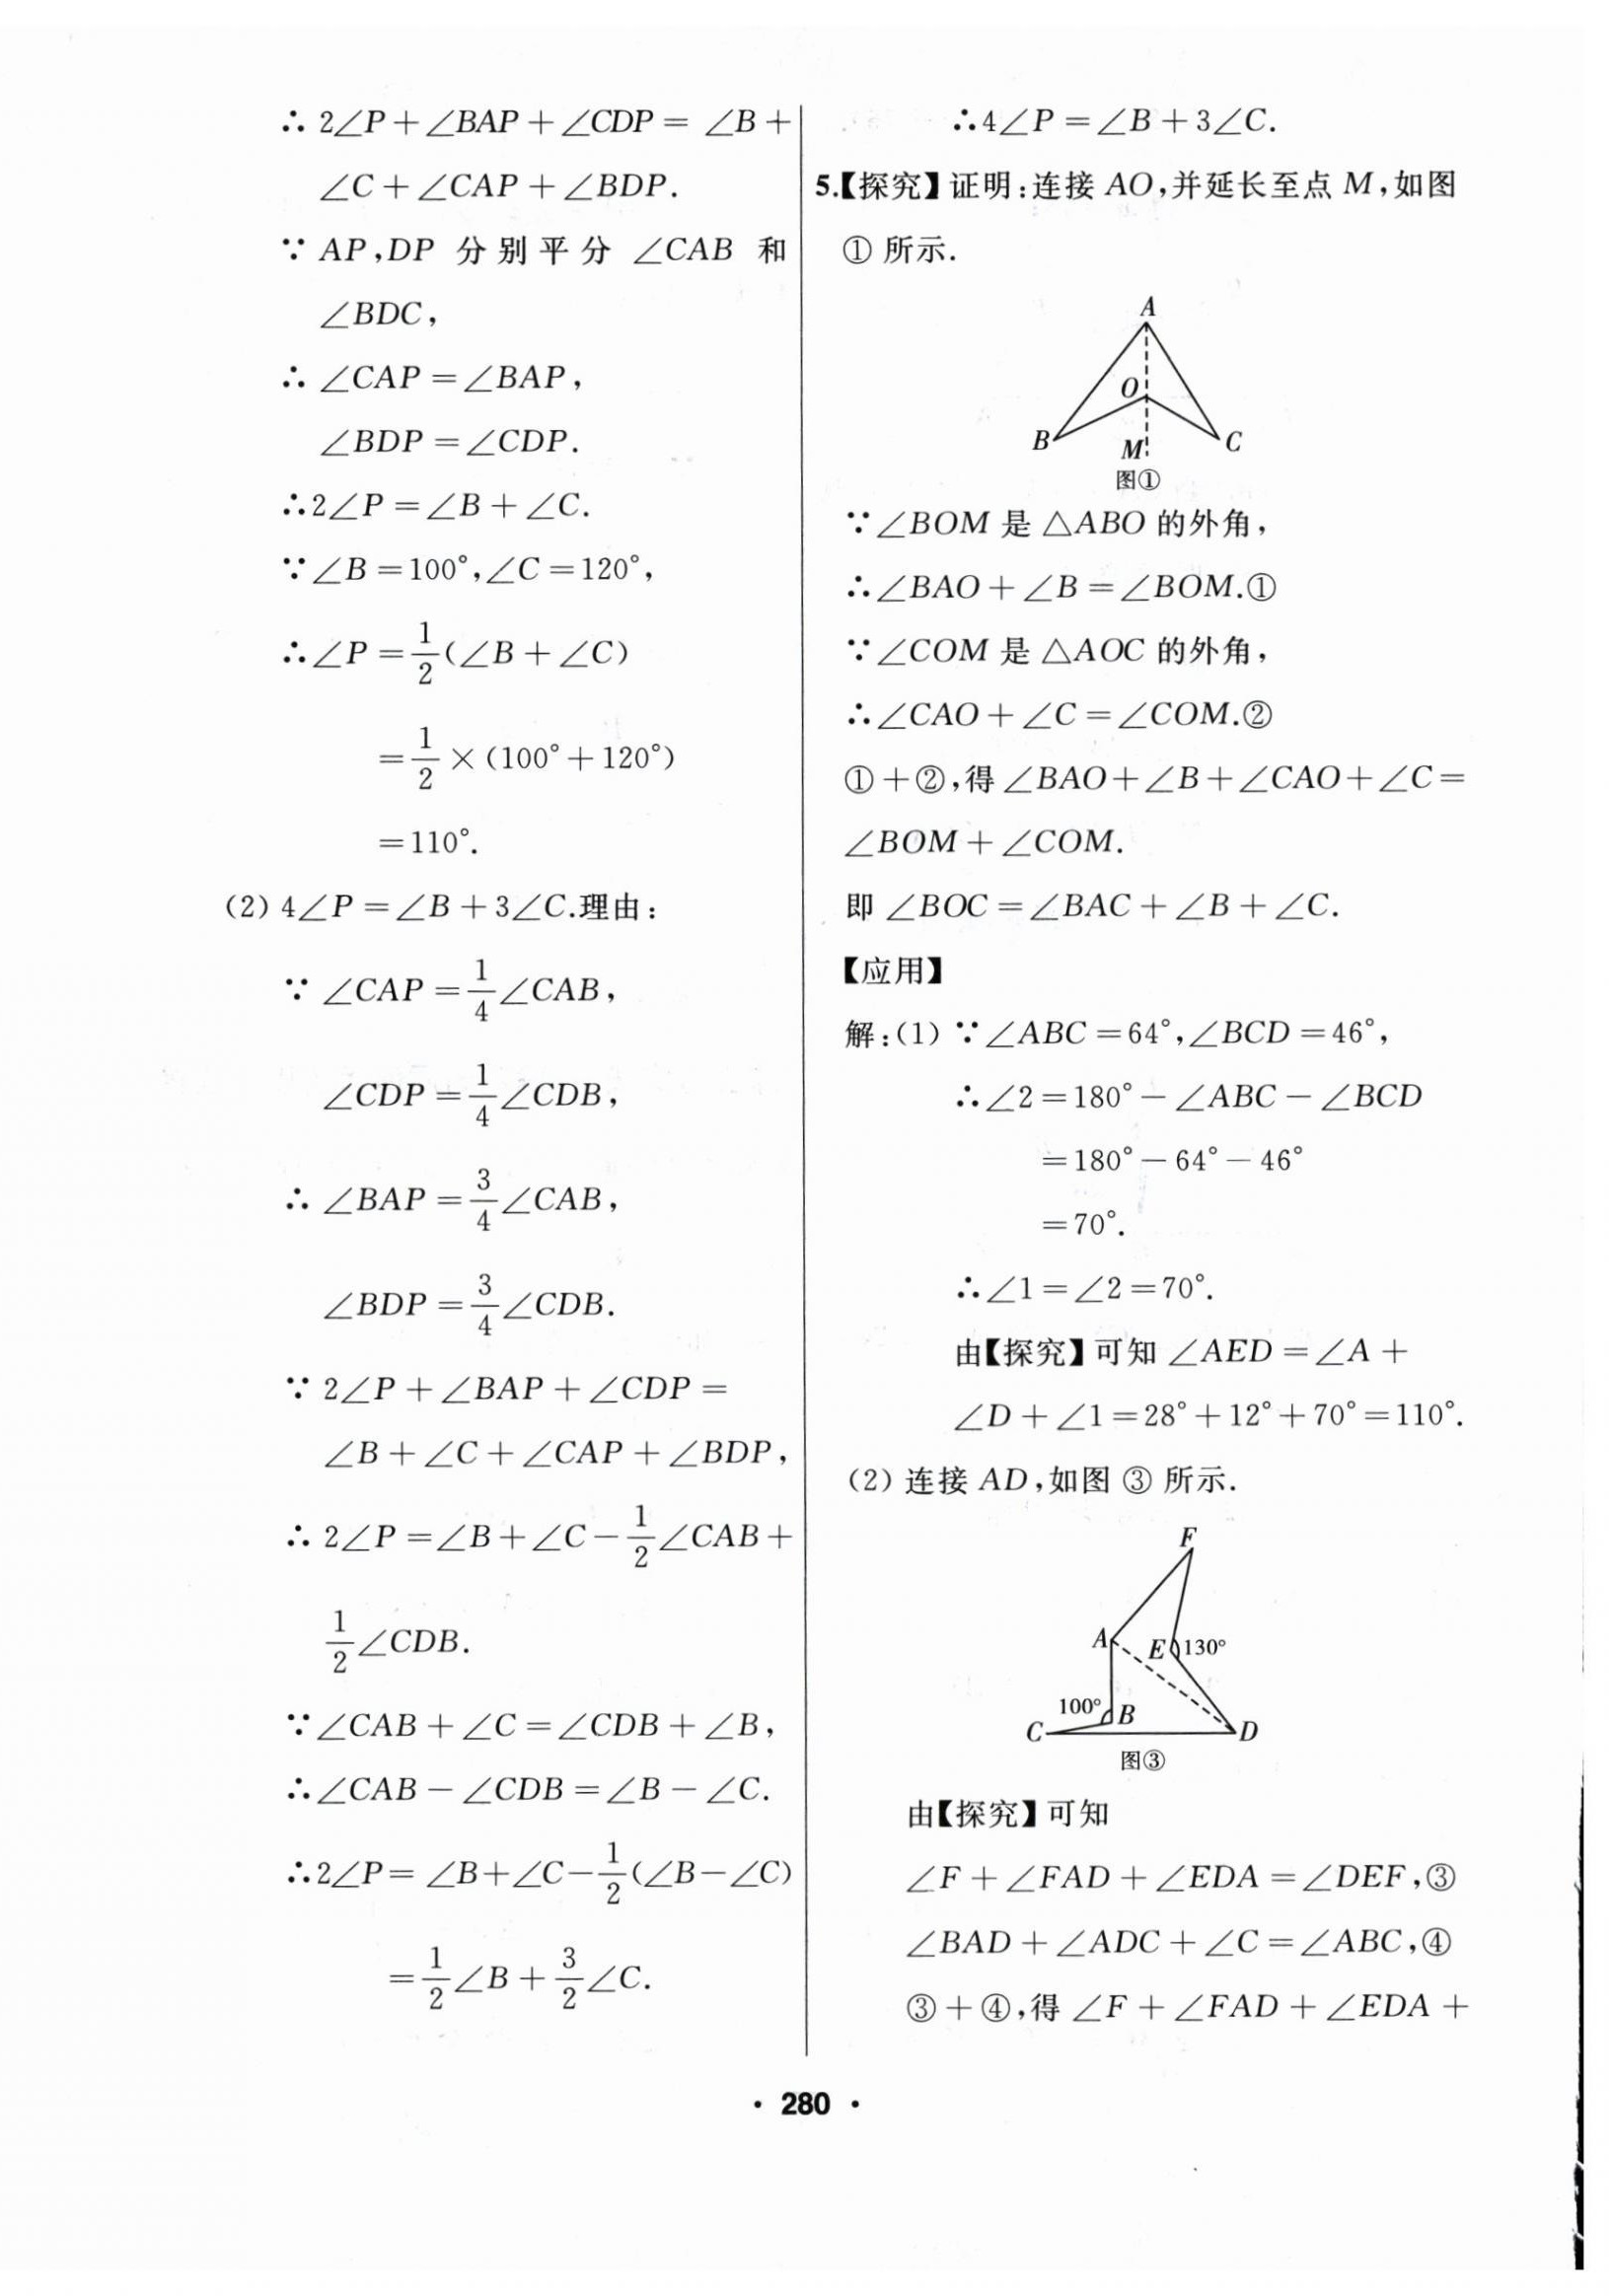 ∴ 2∠P+∠BAP+∠CDP= ∠B+
∠C+∠CAP+∠BDP.
∵ AP,DP 分别平分 ∠CAB 和
∠BDC,
∴ ∠CAP=∠BAP,
∠BDP=∠CDP.
∴2∠P=∠B+∠C.
∵∠B=100°,∠C=120°,
∴∠P=1/2(∠B+∠C)
=1/2×(100°+120°)
=110°.
(2) 4∠P=∠B+3∠C.理由:
∵ ∠CAP=1/4∠CAB,
∠CDP=1/4∠CDB,
∴ ∠BAP=3/4∠CAB,
∠BDP=3/4∠CDB.
∵ 2∠P+∠BAP+∠CDP=
∠B+∠C+∠CAP+∠BDP,
∴ 2∠P=∠B+∠C-1/2∠CAB+
1/2∠CDB.
∵∠CAB+∠C=∠CDB+∠B,
∴∠CAB-∠CDB=∠B-∠C.
∴2∠P= ∠B+∠C-1/2(∠B-∠C)
=1/2∠B+3/2∠C.
∴4∠P=∠B+3∠C.
5.【探究】证明:连接 AO,并延长至点 M,如图
① 所示.
A
O
B
M
C
图①
∵∠BOM 是 △ABO 的外角,
∴∠BAO+∠B=∠BOM.①
∵∠COM 是 △AOC 的外角,
∴∠CAO+∠C=∠COM.②
①+②,得∠BAO+∠B+∠CAO+∠C=
∠BOM+∠COM.
即 ∠BOC=∠BAC+∠B+∠C.
【应用】
解:(1) ∵∠ABC=64°,∠BCD=46°,
∴∠2=180°-∠ABC-∠BCD
=180°-64°-46°
=70°.
∴∠1=∠2=70°.
由【探究】可知 ∠AED=∠A+
∠D+∠1=28°+12°+70°=110°.
(2) 连接 AD,如图 ③ 所示.
F
A
E
130°
100°
B
C
D
图③
由【探究】可知
∠F+∠FAD+∠EDA=∠DEF,③
∠BAD+∠ADC+∠C=∠ABC,④
③+④,得 ∠F+∠FAD+∠EDA+
· 280 ·